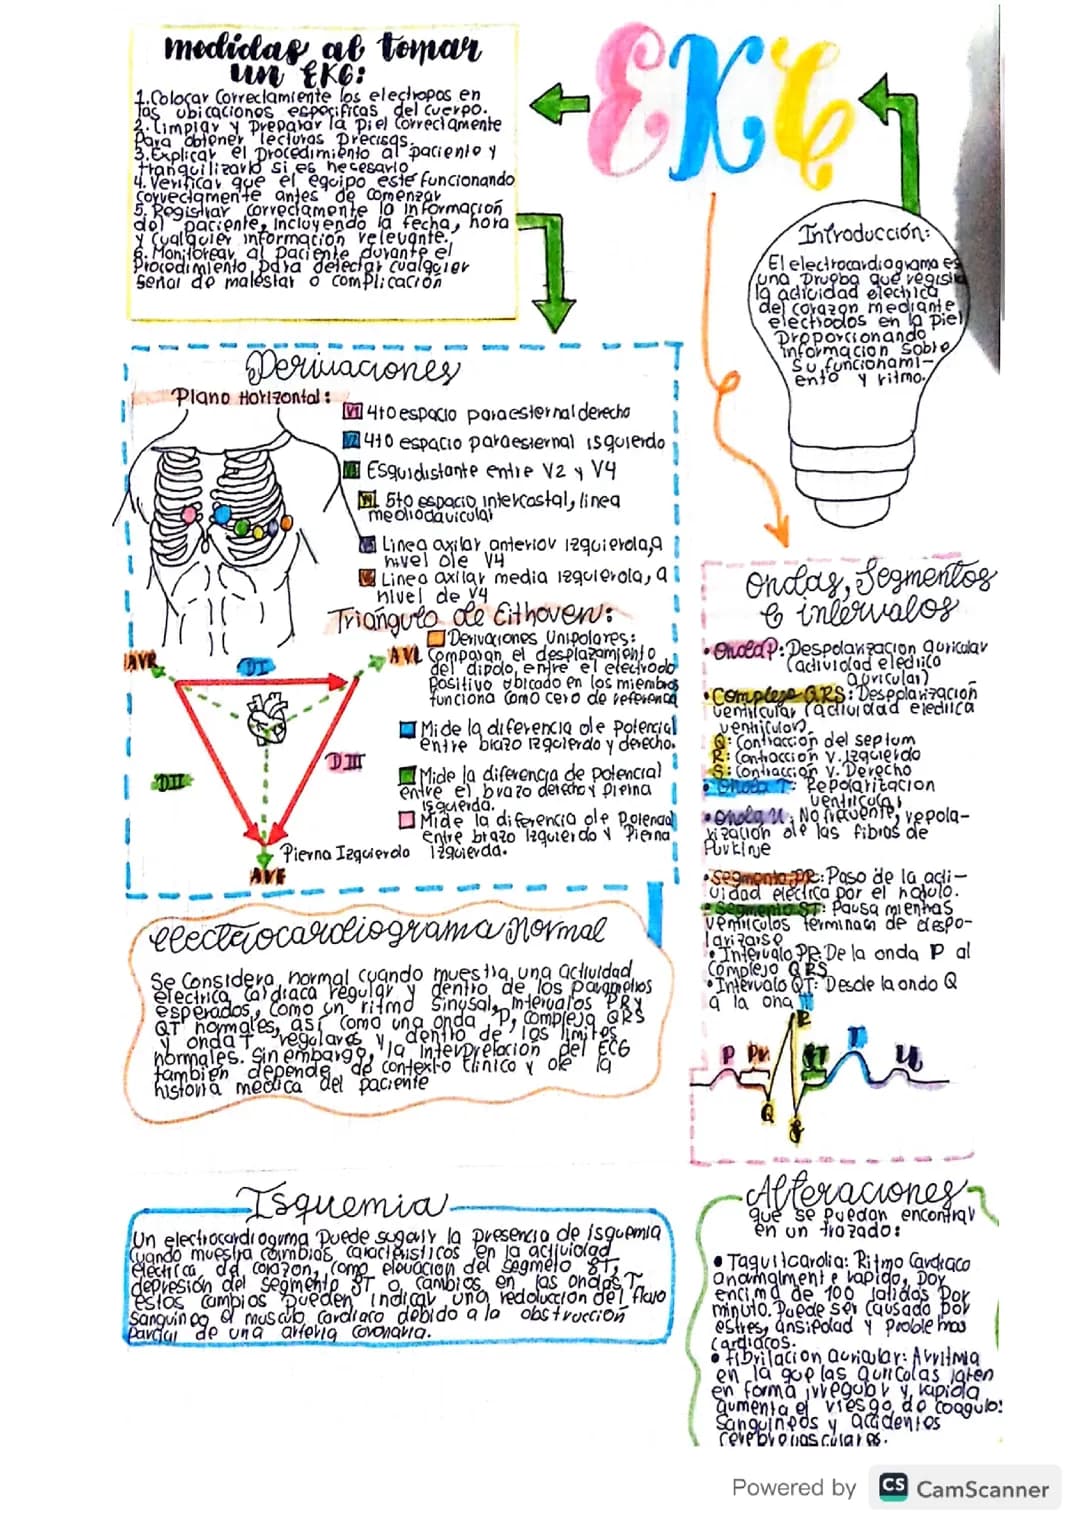 EKG
medidas al tomar
un EKG:
1. Colocar Correctamente los electropos en
las ubicaciones esporificas del cuerpo.
2. Limpiar y Preparar la Piel Correctamente
Para obtener lecturas Precisas.
3. Explicar el Procedimiento al paciente y
tranquilizarlo si es necesario
4. Verificar que el equipo este funcionando
Correctamente antes de Comenzar
5. Registrar correctamente la Información
del paciente, incluyendo la fecha, hora
y Cualquier información relevante.
6. Monitorear al Paciente durante el
Procedimiento para detectar Cualquier
señal de malestar o complicación
Introducción:
El electrocardiograma es
una Prueba que registra
la actividad electrica
del corazon mediante
electrodos en la Piel
Proporcionando
información sobre
su funcionami-
ento y ritmo.
Derivaciones
Plano Horizontal:
V1 4to espacio paraesternal derecho
V2 4to espacio paraesternal isquierdo
V3 Esquidistante entre V2 y V4
V4 5to espacio intercostal, linea
medioclavicular
Linea axilar anterior izquierda, a
nivel de V4
Linea axilar media izquierda, a
nivel de V4
Triángulo de Eithoven:
AVR
DI
AVL
DII
DIII
Pierna Izquierda
AVF
Derivaciones Unipolares:
Comparan el desplazamiento
del dipolo, entre el electrodo
Positivo ubicado en los miembros
funciona como cero de referencia
Mide la diferencia de Potencial
entre brazo izquierdo y derecho.
Mide la diferencia de potencial
entre el brazo derecho y Pierna
isquerda.
Mide la diferencia de Potencial
entre brazo Izquierdo y Pierna
Izquierda.
Ondas, Segmentos
e intervalos
• Onda P: Despolarizacion auricular
(actividad electrica
auricular)
• Complejo QRS: Despolarización
ventricular (actividad electrica
ventricular)
Q: Contracción del septum
R: Contraccion v. Izquierdo
S: Contraccion v. Derecho
• Onda T: Repolarización
ventricular
• Onda U: No frecuente, repola-
rización de las fibras de
Purkinje
• Segmento PR: Paso de la acti-
vidad electrica por el nodulo.
• Segmento ST: Pausa mientras
ventriculos terminan de despo-
larizarse
• Intervalo PR: De la onda P al
Complejo QRS
• Intervalo QT: Desde la onda Q
a la ona T
P PR Q R S ST T U
electrocardiograma Normal
Se Considera normal cuando muestra una actividad
electrica Cardiaca regular y dentro de los parametros
esperados, Como un ritmo Sinusal, Intervalos PR y
QT normales, así como una onda P, complejo QRS
y onda T regulares y dentro de los limites
normales. Sin embargo, la Interpretación del ECG
tambien depende de contexto Clinico y de la
historia médica del paciente
Isquemia
Un electrocardiogrma Puede sugerir la presencia de isquemia
Cuando muestra cambios caracteristicos en la actividad
electrica del corazon, como elevacion del segmeto ST,
depresión del segmento ST o Cambios en las ondas T,
estos Cambios Pueden indicar una redolucción del flujo
Sanguineo al musculo Cardiaco debido a la obstrucción
Parcial de una arteria Coronaria.
Alteraciones
que se Puedan encontrar
en un trazado:
• Taquicardia: Ritmo Cardiaco
anormalmente rapido, Por
encima de 100 latidos Por
minuto. Puede ser causado por
estres, ansiedad y Problemas
Cardiacos.
• fibrilacion auricular: Arritmia
en la que las auricolas laten
en forma irregular y rapida
aumenta el riesgo de coagulo:
Sanguineos y accidentes
cerebrovasculares.
Powered by CS CamScanner